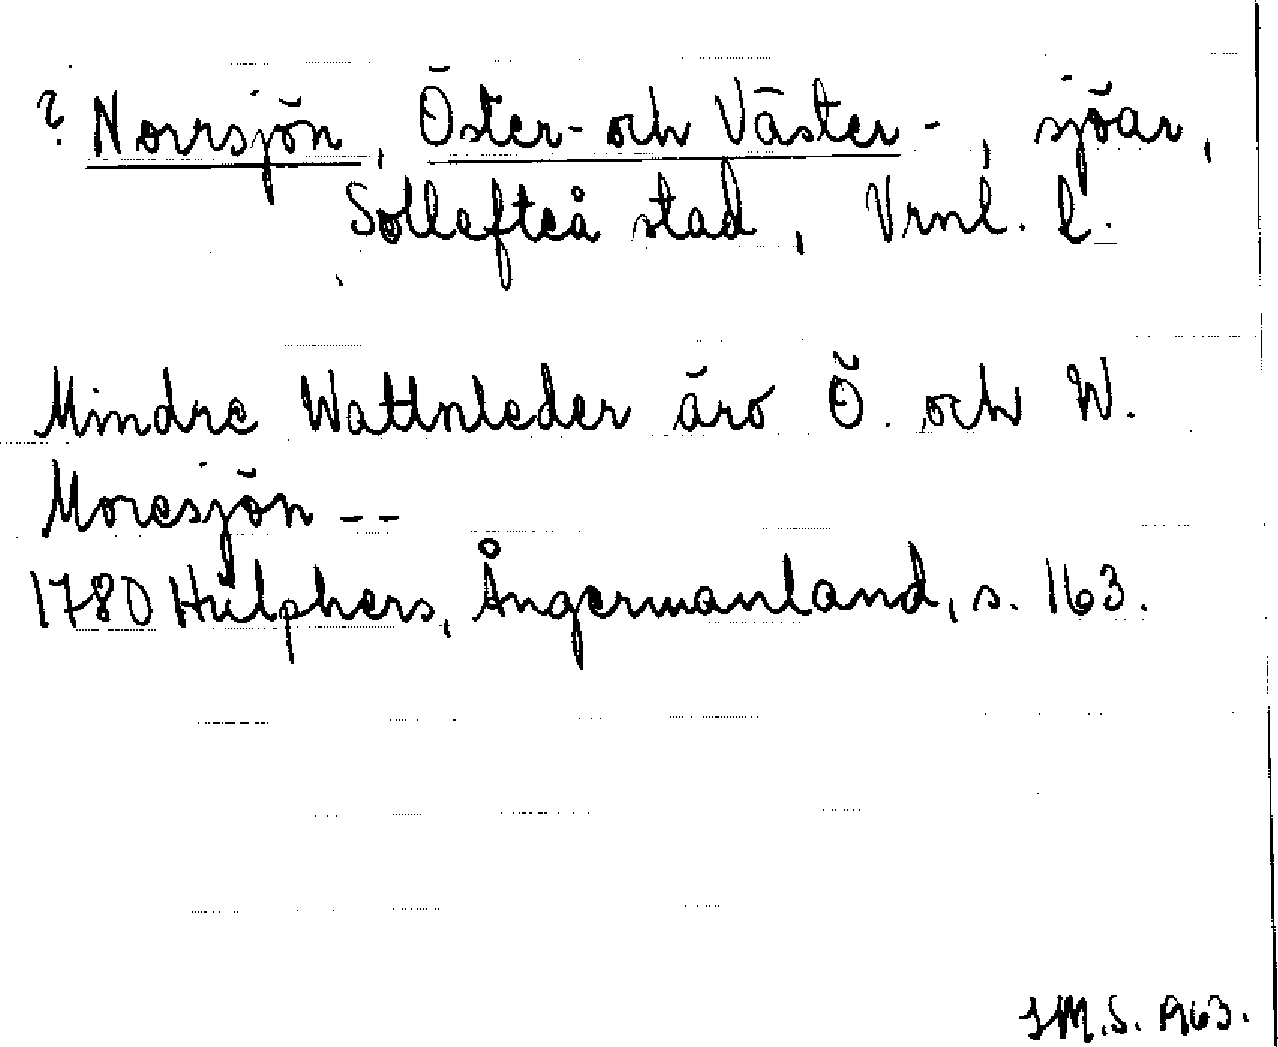 ? Norrsjön, Öster- och Väster-, sjöar,
Sollefteå stad, Vrnl. l.
Mindre Wattnleder äro Ö. och W.
Moresjön --
1780 Hülphers, Ångermanland, s. 163.
I.M.S. 1963.